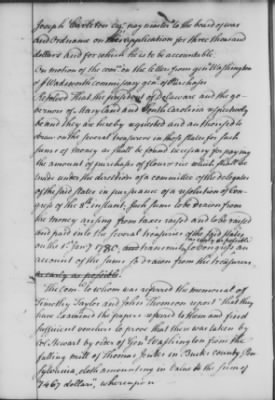 Joseph Carleton Esqr paymaster to the board of war
and Ordnance on their application for three thousand
dollars and for which he is to be accountable.
On motion of the comee on the letter from genl Washington
& J Wadsworth commissary genl of Purchases
Resolved That the president of Delaware and the go-
vernors of Maryland and South Carolina respectively
be and they are hereby requested and authorised to
draw on the several treasurers in those states for such
sums of money as shall be found necessary for paying
the amount of purchase of flour or rice which shall be
made under the direction of a committee of the delegates
of the said states in pursuance of a resolution of Con-
gress of the 8th instant, such sums to be drawn from
the money arising from taxes raised and to be raised
and paid into the several treasuries of the said states
as early as possible
on the 1st Jany 1780, and transmit to congress an
account of the sums so drawn from the treasurers
as early as possible.
The comee to whom was referred the memorial of
Timothy Taylor and John Thomson report "That they
have examined the papers referred to them and find
sufficient vouchers to prove that there was taken by
Mr Stewart by order of Genl Washington from the
fulling mill of Thomas Jenks in Bucks county Pen
sylvania, cloth amounting in value to the sum of
7467 dollars", whereupon